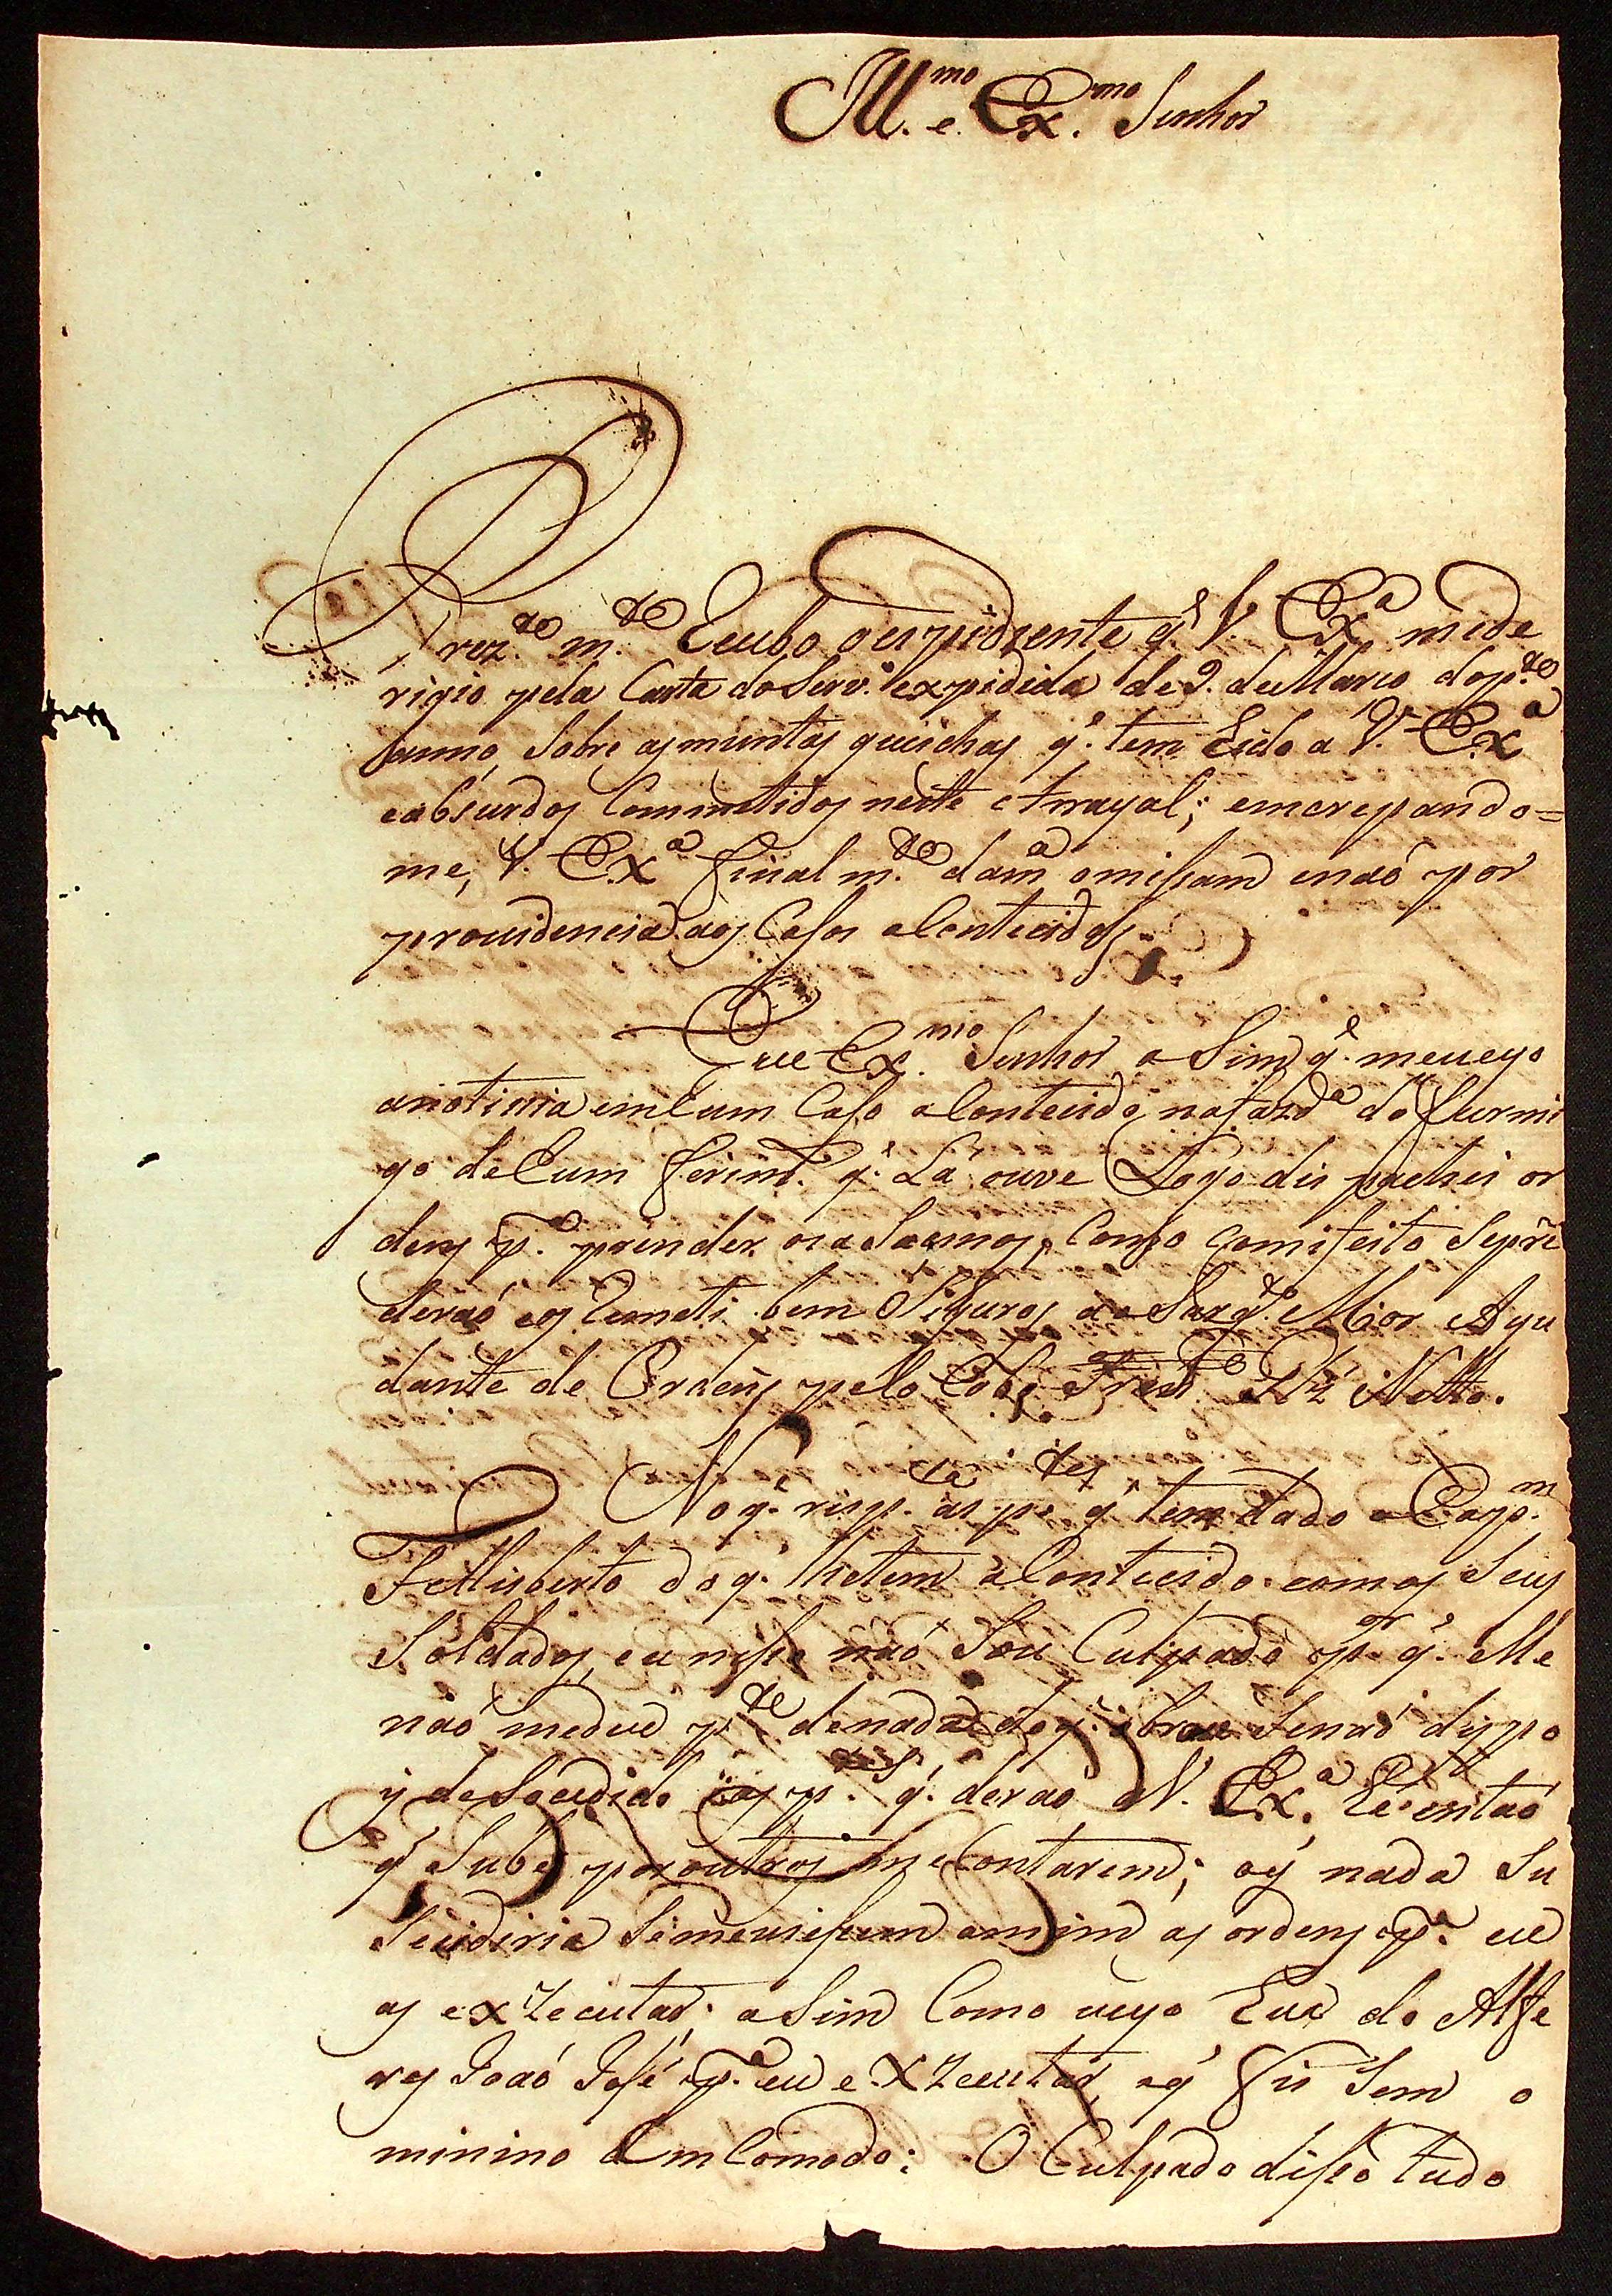 Ill.mo e Ex.mo Senhor
Prez.te m.te Recebo o espidiente q.e V. Ex.a mede
rigio pela Carta do Serv.o expidida de 9. de Março do p.te
anno, Sobre as muntas queichas q.e tem Eido a V. Ex.a
e absurdos Commetidos neste Arrayal; emcrepando=
me, V. Ex.a final m.te da m.a omissam e naó por
providencia aos Casos aContecidos.
Que Ex.mo Senhor a Sim q.e me veyo
a notiçia em Eum Caso aContecido na fazd.a do furmi
go de Eum ferim.to q.e Lá ouve Logo dis pachei or
dens p.a prender os aSacinos, Como Comifeito Seprĩ
deraó e os Remeti bem Siguros ao Sarg.to Mor Aju
dante de Ordens pelo Cabo Fran.co Netto.
No q.e resp.ta as p.tes q.e tem dado o Cap.m
Fellisberto do q.e lhetem aContecido com os Seus
Soldados, eu nisso naó Sou Culpado p.r q.e Elle
naó medeu p.te de nada do q.e obrou Senaó dispo
is deSocedido as p.tes q.e deraó a V. Ex.a Eé entaó
q.e Sube por outros me Contarem; o q.e nada Su
Sediria Simeviessem amim as ordens p.a eu
as exzecutar; aSim Como veyo Eua do Alfe
res Joaó José p.a eu exzecutar, o q.e fis Sem o
minino Emcomodo: O Culpado disso tudo